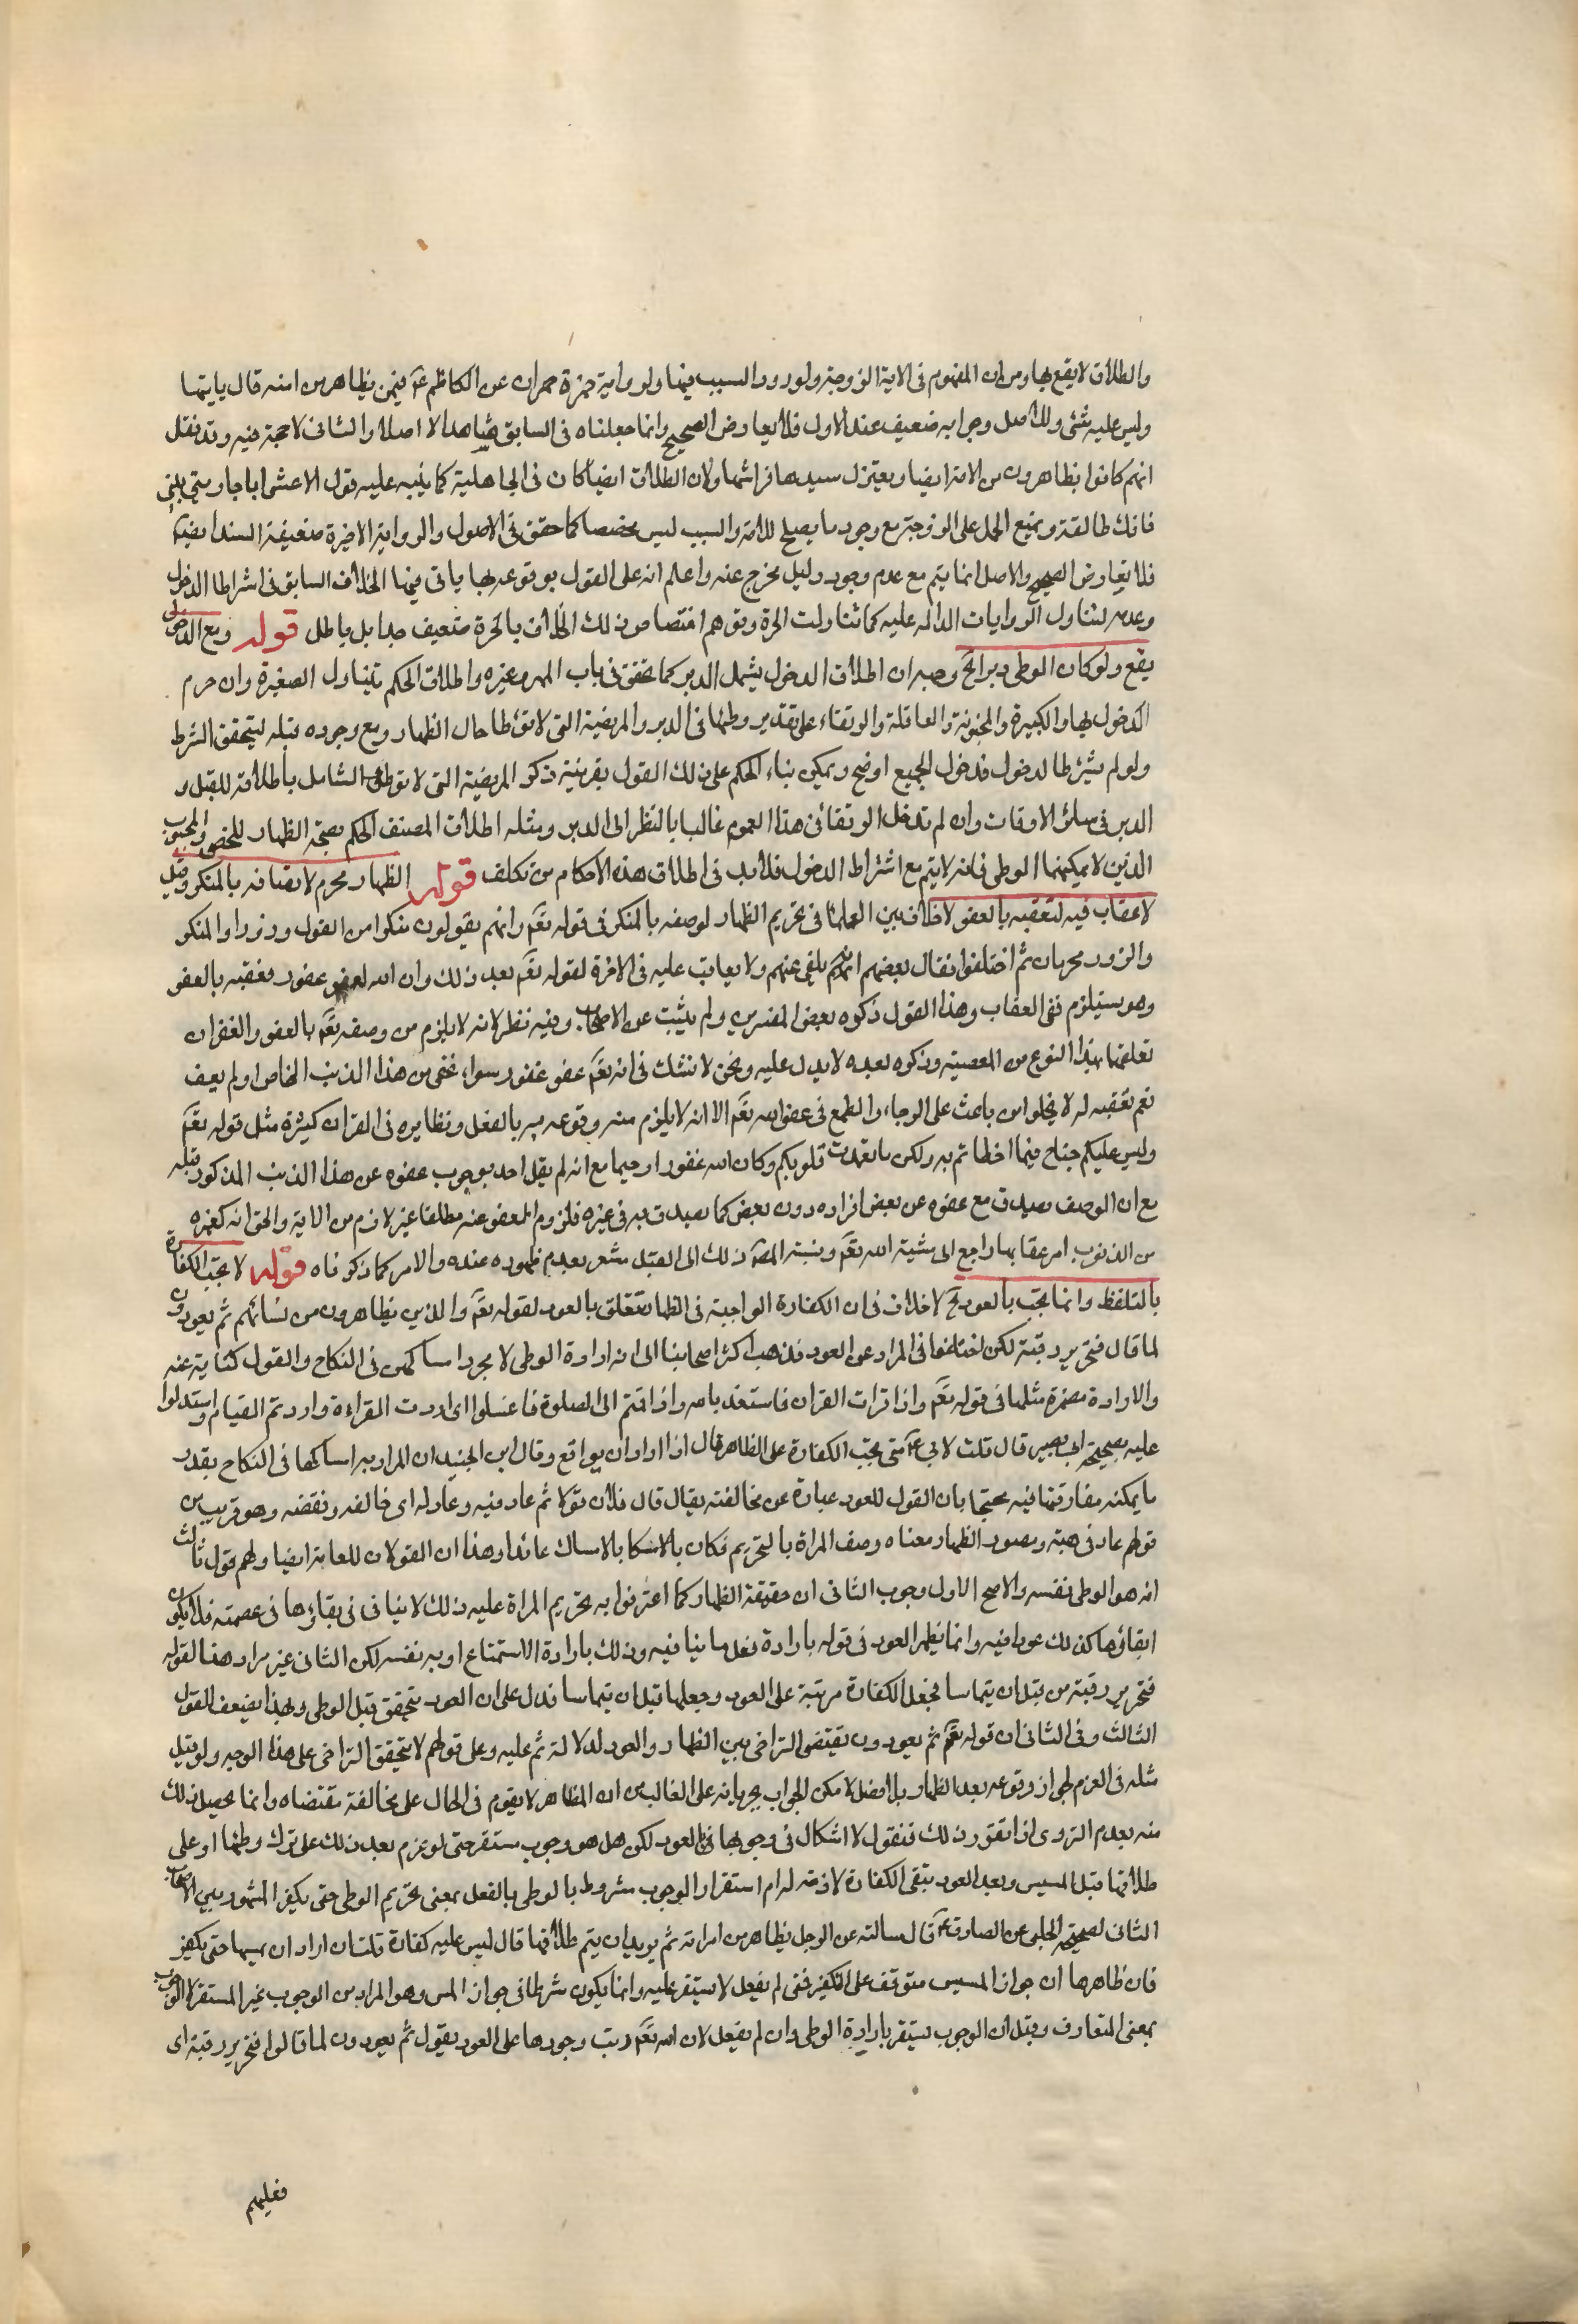 والطلاق لا يقع بها ومن ان المفهوم فى الاية الزوجة ولورود السبب فيها ولرواية حمزة حمران عن الكاظم ع فيمن يظاهر من امته قال ياتيها
وليس عليه شئ وللاصل وجوابه ضعيف عند الاول فلا يعارض الصحيح وانما جعلناه فى السابق شاهدا لا اصلا والثانى لا حجة فيه وقد نقل
انهم كانوا يظاهرون من الامة ايضا ويعتزل سيدها فراشها ولان الطلاق ايضا كان فى الجاهلية كما ينبه عليه قول الاعشى اياجارتى بينى
فانك طالقة ويمنع الحمل على الزوجة مع وجود ما يصلح للامة والسبب ليس مخصصا كما حقق فى الاصول والرواية الاخيرة ضعيفة السند ايضا
فلا تعارض الصحيح والاصل انما يتم مع عدم وجود دليل يخرج عنه واعلم انه على القول بوقوعه بها ياتى فيها الخلاف السابق فى اشراط الدخول
وعدمه لتناول الروايات الدالة عليه كما تناولت الحرة وتوهم اختصاص ذلك الخلاف بالحرة ضعيف جدا بل باطل قوله ومع الدخول
يقع ولو كان الوطى دبرا الخ وجه ان اطلاق الدخول يشمل الدبر كما تحقق فى باب المهر وغيره واطلاق الحكم يتناول الصغيرة وان حرم
الدخول بها والكبيرة والمجنونة والعاقلة والرتقاء على تقدير وطئها فى الدبر والمريضة التى لا توطا حال الظهار ومع وجوده قبله ليتحقق الشرط
ولو لم يشترط الدخول فدخول الجميع اوضح ويمكن بناء الحكم على ذلك القول بقرينة ذكر المريضة التى لا توطى الشامل باطلاقه للقبل و
الدبر فى سائر الاوقات وان لم تدخل الرتقا فى هذا العموم غالبا بالنظر الى الدبر ومثله اطلاق المصنف الحكم بصحة الظهار للخصى والمجبوب
الذين لا يمكنهما الوطى فانه لا يتم مع اشتراط الدخول فلا بد فى اطلاق هذه الاحكام من تكلف قوله الظهار محرم لاتصافه بالمنكر وقيل
لا عقاب فيه لتعقبه بالعفو لا خلاف بين العلما فى تحريم الظهار لوصفه بالمنكر فى قوله تعم وانهم يقولون منكرا من القول وزورا والمنكر
والزور محرمان ثم اختلفوا فقال بعضهم انه يلغى عنهم ولا يعاقب عليه فى الاخرة لقوله تعم بعد ذلك وان الله لعفو غفور فعقبه بالعفو
وهو يستلزم نفى العقاب وهذا القول ذكره بعض المفسرين ولم يثبت عن الاصحاب وفيه نظر لانه لا يلزم من وصفه تعم بالعفو والغفران
تعلقهما بهذا النوع من المعصية وذكره بعده لا يدل عليه ونحن لا نشك فى انه تعم عفو غفور سواء عفى من هذا الذنب الخاص او لم يعف
نعم تعقبه له لا يخلوا من باعث على الرجاء والطمع فى عفو الله تعم الا انه لا يلزم منه وقوعه به بالفعل ونظايره فى القران كثيرة مثل قوله تعم
وليس عليكم جناح فيما اخطاتم به ولكن ما تعمدت قلوبكم وكان الله غفورا رحيما مع انه لم يقل احد بوجوب عفوه عن هذا الذنب المذكور قبله
مع ان الوصف يصدق مع عفوه عن بعض افراده دون بعض كما يصدق به فى غيره فلزوم العفو عنه مطلقا غير لازم من الاية والحق انه كغيره
من الذنوب امر عقابها راجع الى مشية الله تعم ونسبة المص ذلك الى القيل مشعر بعدم ظهوره عنده والامر كما ذكرناه قوله لا تجب الكفارة
بالتلفظ وانما تجب بالعود الخ لا خلاف فى ان الكفارة الواجبة فى الظهار تتعلق بالعود لقوله تعم والذين يظاهرون من نسائهم ثم يعودون
لما قال فتحرير رقبة لكن اختلفوا فى المراد عن العود فذهب اكثر اصحابنا الى انه ارادة الوطى لا مجرد امساكهن فى النكاح والقول كناية عنه
والارادة مضمرة مثلها فى قوله تعم واذا قرات القران فاستعذ بالله واذا قمتم الى الصلوة فاغسلوا اى اردت القراءة واردتم القيام واستدلوا
عليه بصحيحة ابى بصير قال قلت لابى ع متى تجب الكفارة على المظاهر قال اذا اراد ان يواقع وقال ابن الجنيد ان المراد به امساكها فى النكاح بقدر
ما يمكنه مفارقتها فيه محتجا بان القول للعود عبارة عن مخالفته يقال قال فلان قولا ثم عاد فيه وعاد له اى خالفه ونقضه وهو قريب من
قولهم عاد فى هبته ومقصود الظهار معناه وصف المراة بالتحريم فكان بالامساك عائدا وهذا ان القولان للعامة ايضا ولهم قول ثالث
انه هو الوطى نفسه والاصح الاول وجوب الثانى ان حقيقة الظهار كما اعترفوا به تحريم المراة عليه ذلك لا ينافى فى بقاؤها فى عصمته فلا يكون
ابقائها كذلك عودا فيه وانما يظهر العود فى قوله بارادة فعل ما ينافيه وذلك بارادة الاستمتاع او به نفسه لكن الثانى غير مراد هنا لقوله
فتحرير رقبة من قبل ان يتماسا فجعل الكفارة مرتبة على العود وجعلها قبل ان يتماسا فدل على ان العود يتحقق قبل الوطى وبهذا يضعف القول
الثالث وفى الثانى ان قوله تعم ثم يعودون يقتضى التراخى بين الظهار والعود لدلالة ثم عليه وعلى قولهم لا يتحقق التراخى على هذا الوجه ولو قيل
مثله فى العزم لجواز وقوعه بعد الظهار بلا فصل لا مكن الجواب بجريانه على الغالب من ان المظاهر لا يقوم فى الحال على مخالفة مقتضاه وانما يحصل ذلك
منه بعدم التروى اذا تقرر ذلك فنقول لا اشكال فى وجوبها فى العود لكن هل هو وجوب مستقر حتى لو عزم بعد ذلك على ترك وطئها او على
طلاقها قبل المسيس وبعد العود تبقى الكفارة لازمة له ام استقرار الوجوب مشروط بالوطى بالفعل بمعنى تحريم الوطى حتى يكفر المشهور بين الاصحاب
الثانى لصحيحة الحلبى عن الصادق ع قال سالته عن الرجل يظاهر من امراته ثم يريد ان يتم طلاقها قال ليس عليه كفارة قلت ان اراد ان يمسها حتى يكفر
فان ظاهرها ان جواز المسيس متوقف على التكفير فمتى لم يفعل لا يستقر عليه وانما يكون شرطا فى جواز المس وهو المراد من الوجوب غير المستقر لا الوجوب
بمعنى المتعارف وقيل ان الوجوب يستقر بارادة الوطى وان لم يفعل لان الله تعم رتب وجودها على العود بقول ثم يعودون لما قالوا فتحرير رقبة اى
فعليهم